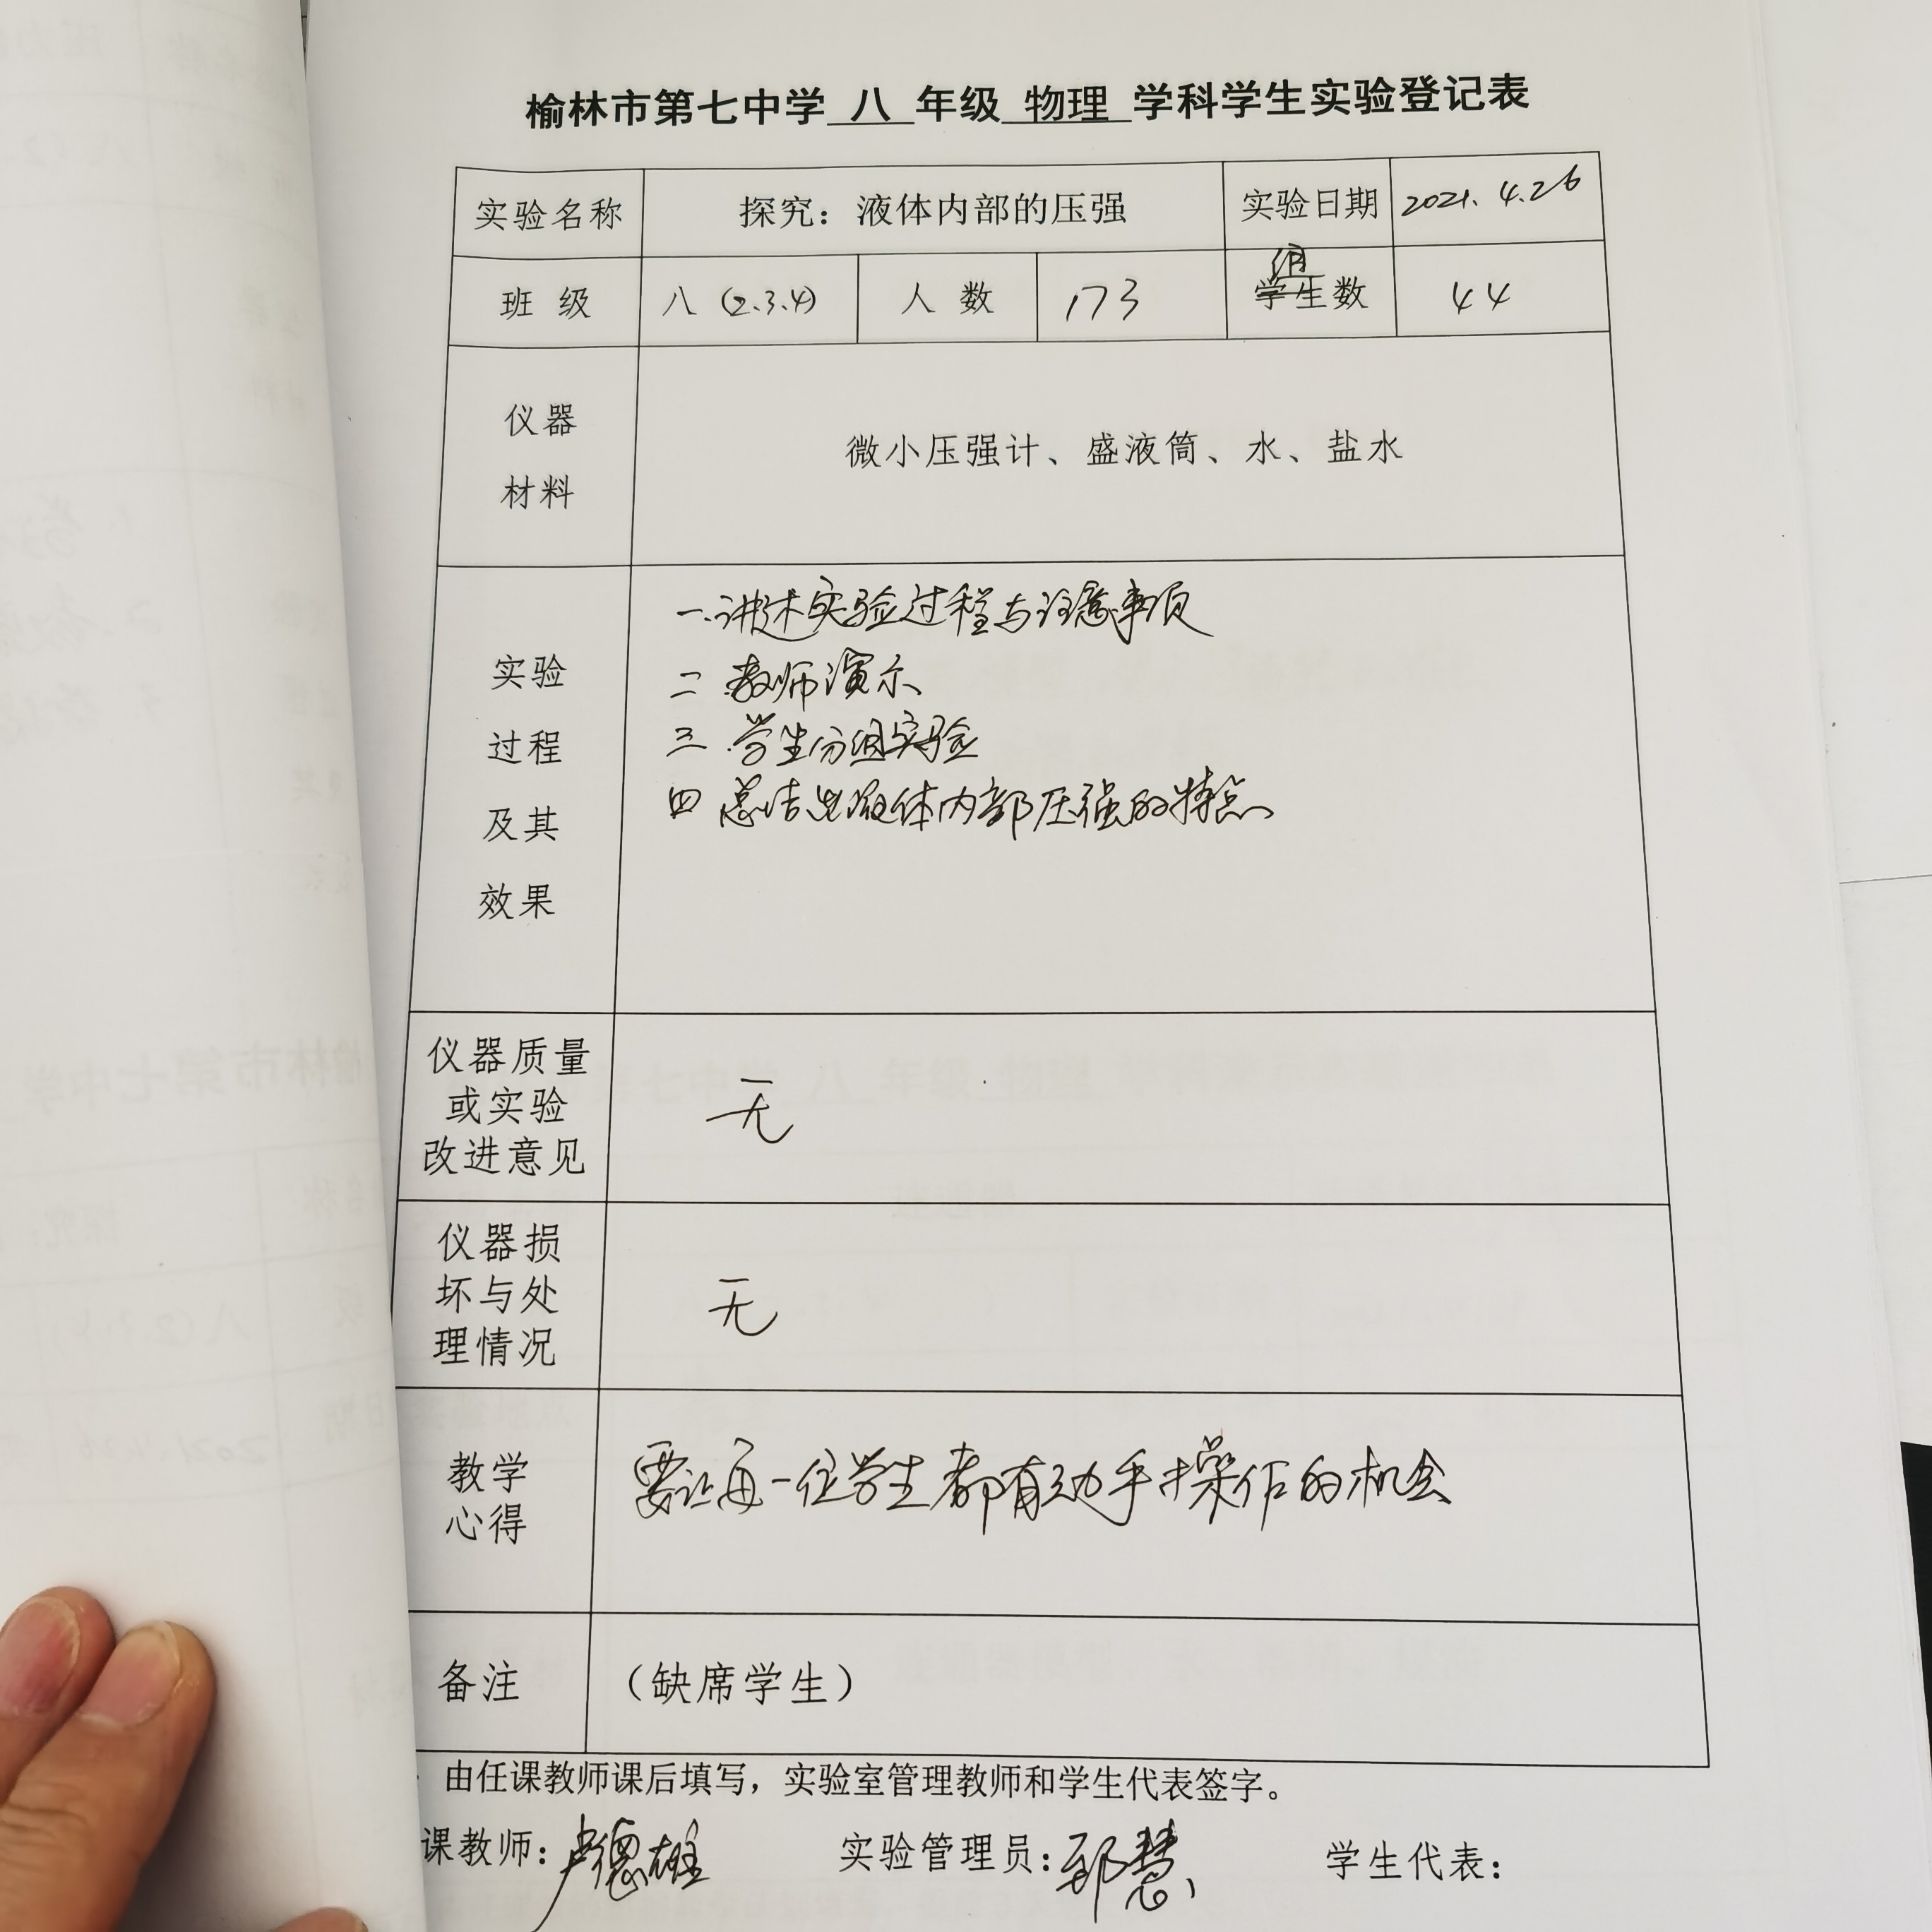 榆林市第七中学 八 年级 物理 学科学生实验登记表
实验名称 探究：液体内部的压强 实验日期 2021.4.26
班 级 八（2.3.4） 人 数 173 组数 44
仪器
材料
微小压强计、盛液筒、水、盐水
实验
过程
及其
效果
一.讲述实验过程与注意事项
二 教师演示
三 学生分组实验
四 总结出液体内部压强的特点
仪器质量
或实验
改进意见
无
仪器损
坏与处
理情况
无
教学
心得
要让每一位学生都有动手操作的机会
备注 （缺席学生）
由任课教师课后填写，实验室管理教师和学生代表签字。
课教师：卢德雄 实验管理员：郭慧 学生代表：